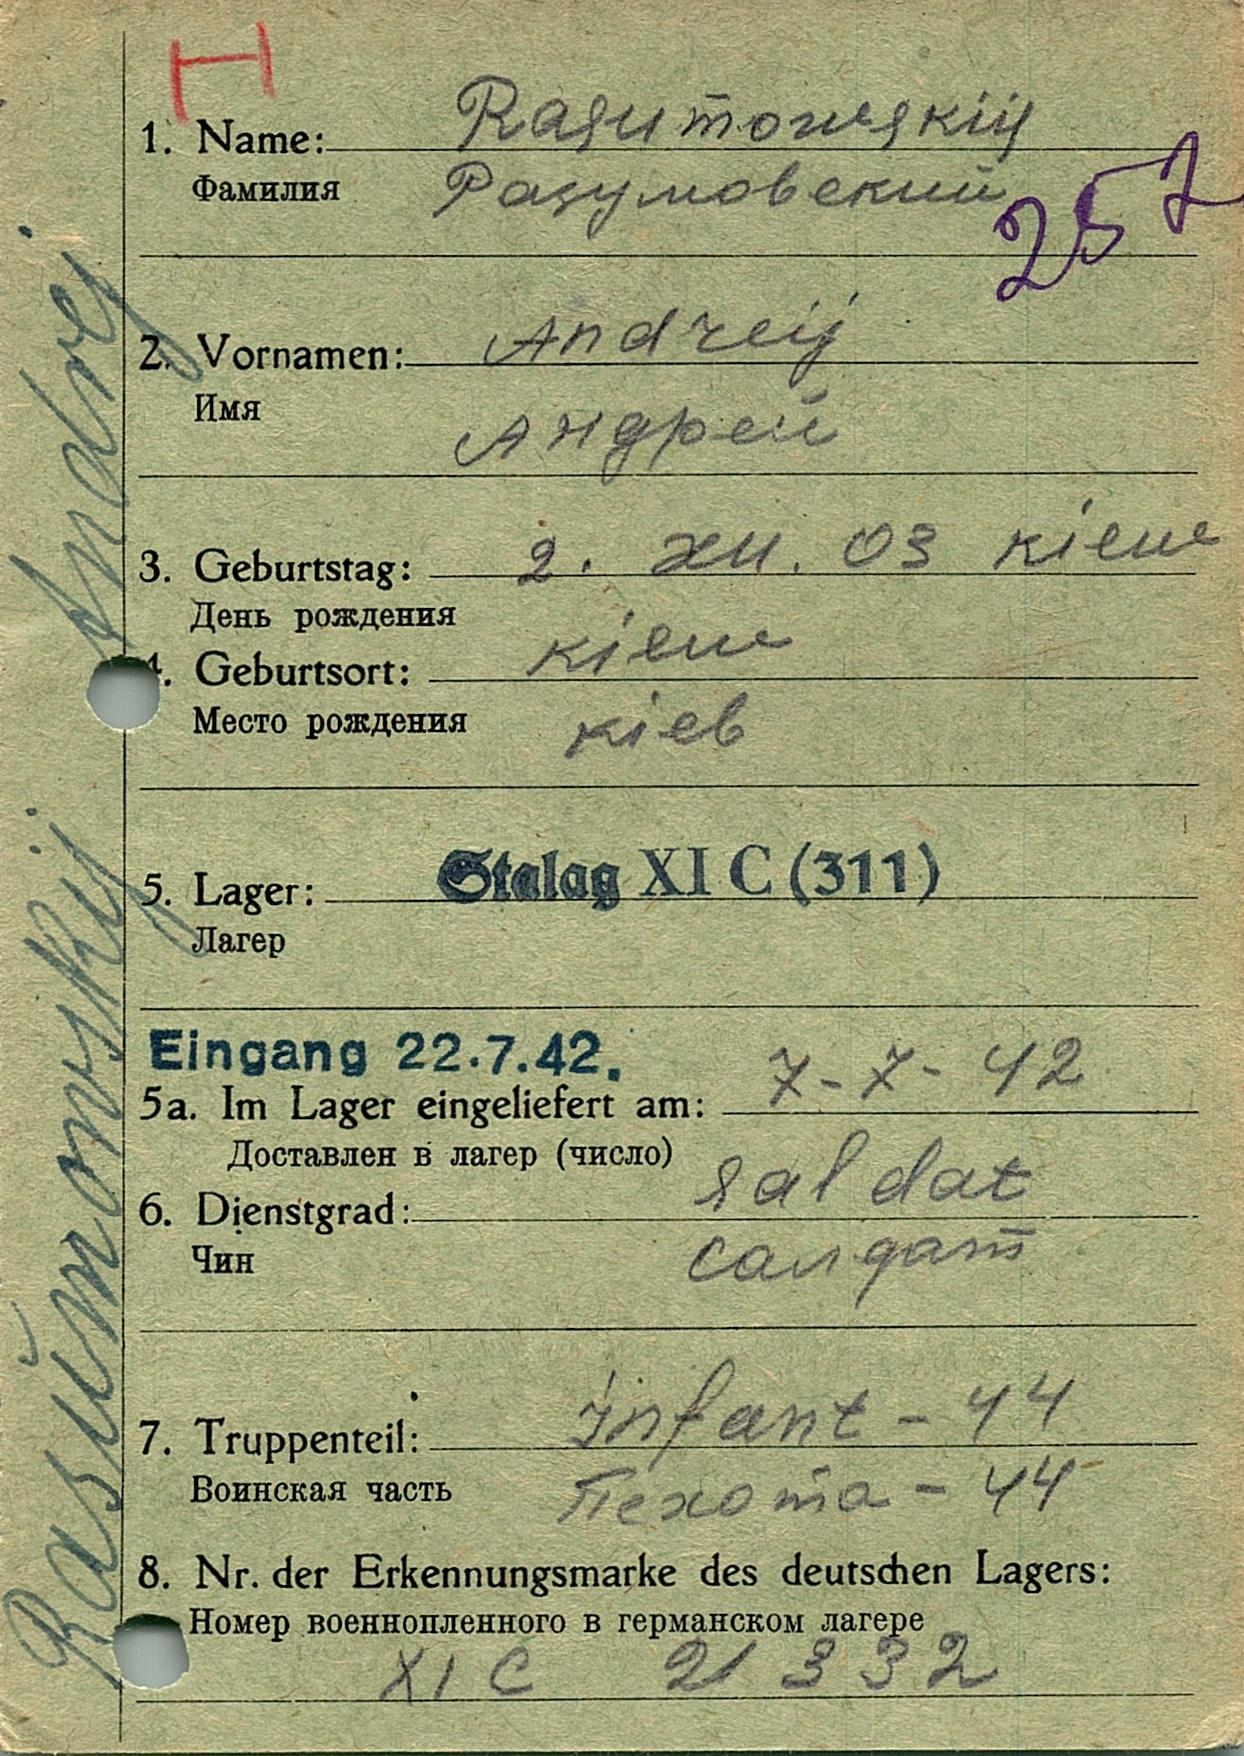 1. Name: Rasumowskij
Фамилия Разумовский
257
2. Vornamen: Andreij
Имя Андрей
3. Geburtstag: 2. XII. 03 Kiew
День рождения
4. Geburtsort: Kiew
Место рождения Кіев
5. Lager: Stalag XI C (311)
Лагер
Eingang 22.7.42.
5a. Im Lager eingeliefert am: 7-7-42
Доставлен в лагер (число)
6. Dienstgrad: saldat
Чин салдат
7. Truppenteil: Infant-44
Воинская часть Пехота-44
8. Nr. der Erkennungsmarke des deutschen Lagers:
Номер военнопленного в германском лагере
XI C 21332
Rasŭmowskij Andrej